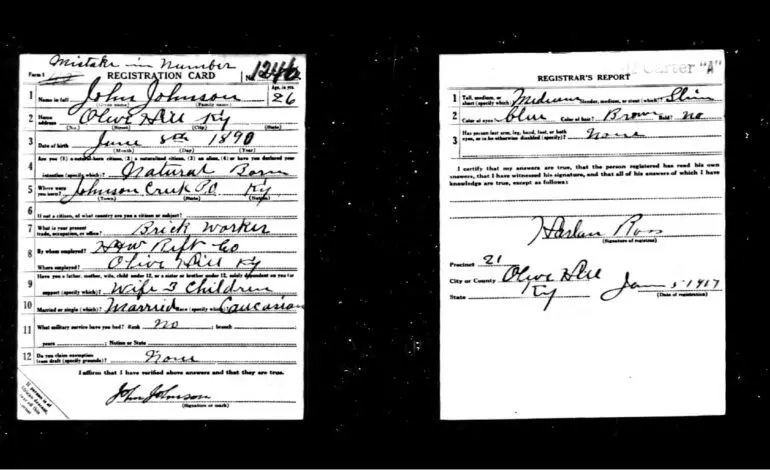 Mistake in Number
Form 1 REGISTRATION CARD No. 1246
1 Name in full John Johnson Age, in yrs. 26
(Given name) (Family name)
2 Home address Olive Hill Ky
(No.) (Street) (City) (State)
3 Date of birth June 8th 1890
(Month) (Day) (Year)
4 Are you (1) a natural-born citizen, (2) a naturalized citizen, (3) an alien, (4) or have you declared your
intention (specify which)? Natural Born
5 Where were you born? Johnson Creek P.O. Ky
(Town) (State) (Nation)
6 If not a citizen, of what country are you a citizen or subject?
7 What is your present trade, occupation, or office? Brick Worker
8 By whom employed? Rift Co
Where employed? Olive Hill Ky
9 Have you a father, mother, wife, child under 12, or a sister or brother under 12, solely dependent on you for
support (specify which)? Wife 3 Children
10 Married or single (which)? Married Race (specify which)? Caucasian
11 What military service have you had? Rank No ; branch
years ; Nation or State
12 Do you claim exemption from draft (specify grounds)? None
I affirm that I have verified above answers and that they are true.
John Johnson
(Signature or mark)
Carter "A"
REGISTRAR'S REPORT
1 Tall, medium, or short (specify which)? Medium Slender, medium, or stout (which)? Slim
2 Color of eyes? Blue Color of hair? Brown Bald? No
3 Has person lost arm, leg, hand, foot, or both
eyes, or is he otherwise disabled (specify)? None
I certify that my answers are true, that the person registered has read his own
answers, that I have witnessed his signature, and that all of his answers of which I have
knowledge are true, except as follows:
Harlan Ross
(Signature of registrar)
Precinct 21
City or County Olive Hill
State Ky
5 1917
(Date of registration)